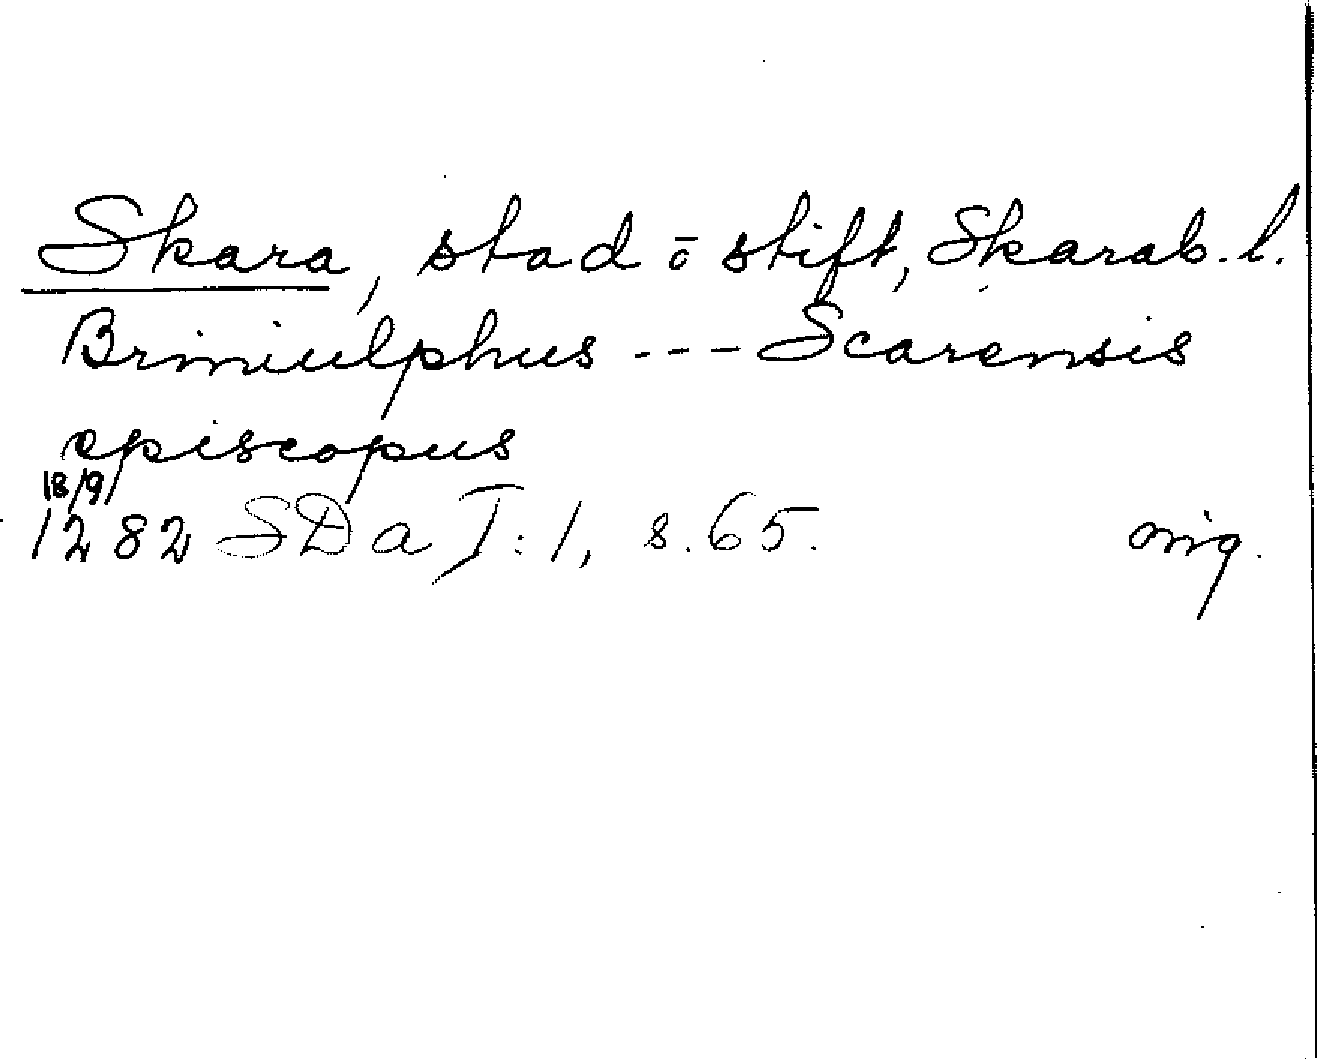 Skara, stad ō stift, Skarab. l.
Briniulphus --- Scarensis
episcopus
18/9
1282 SDa I:1, s. 65. orig.